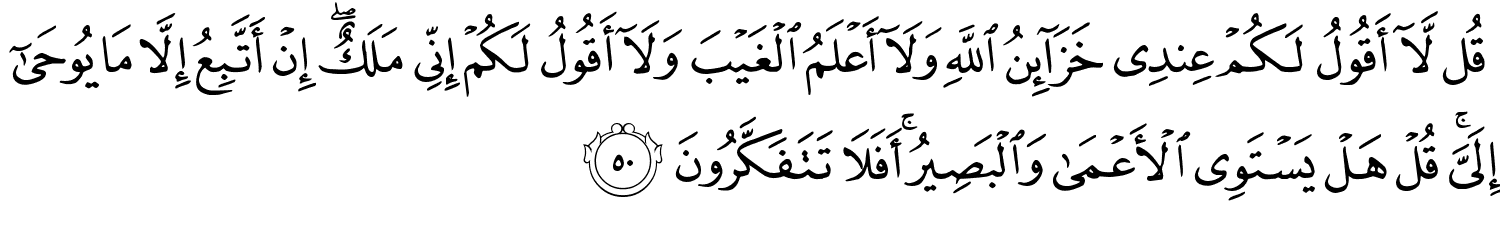 قُل لَّآ أَقُولُ لَكُمْ عِندِى خَزَآئِنُ ٱللَّهِ وَلَآ أَعْلَمُ ٱلْغَيْبَ وَلَآ أَقُولُ لَكُمْ إِنِّى مَلَكٌ ۖ إِنْ أَتَّبِعُ إِلَّا مَا يُوحَىٰٓ
إِلَىَّ ۚ قُلْ هَلْ يَسْتَوِى ٱلْأَعْمَىٰ وَٱلْبَصِيرُ ۚ أَفَلَا تَتَفَكَّرُونَ ٥٠